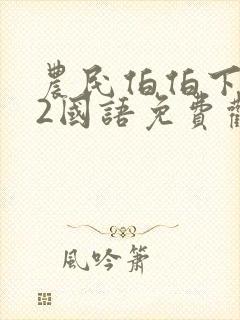 農民伯伯下
2國語免費觀
風吟簫